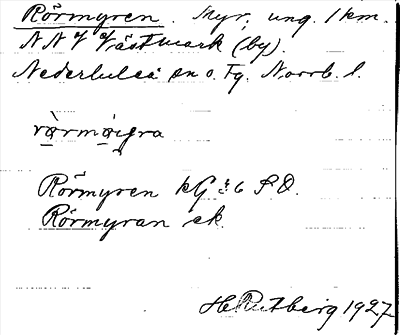 Rörmyren. Myr, ung. 1 km.
NNV Västmark (by).
Nederluleå sn o. tg. Norrb. l.
Rörmyren kG
Rörmyran ek.
H Rutberg 1927